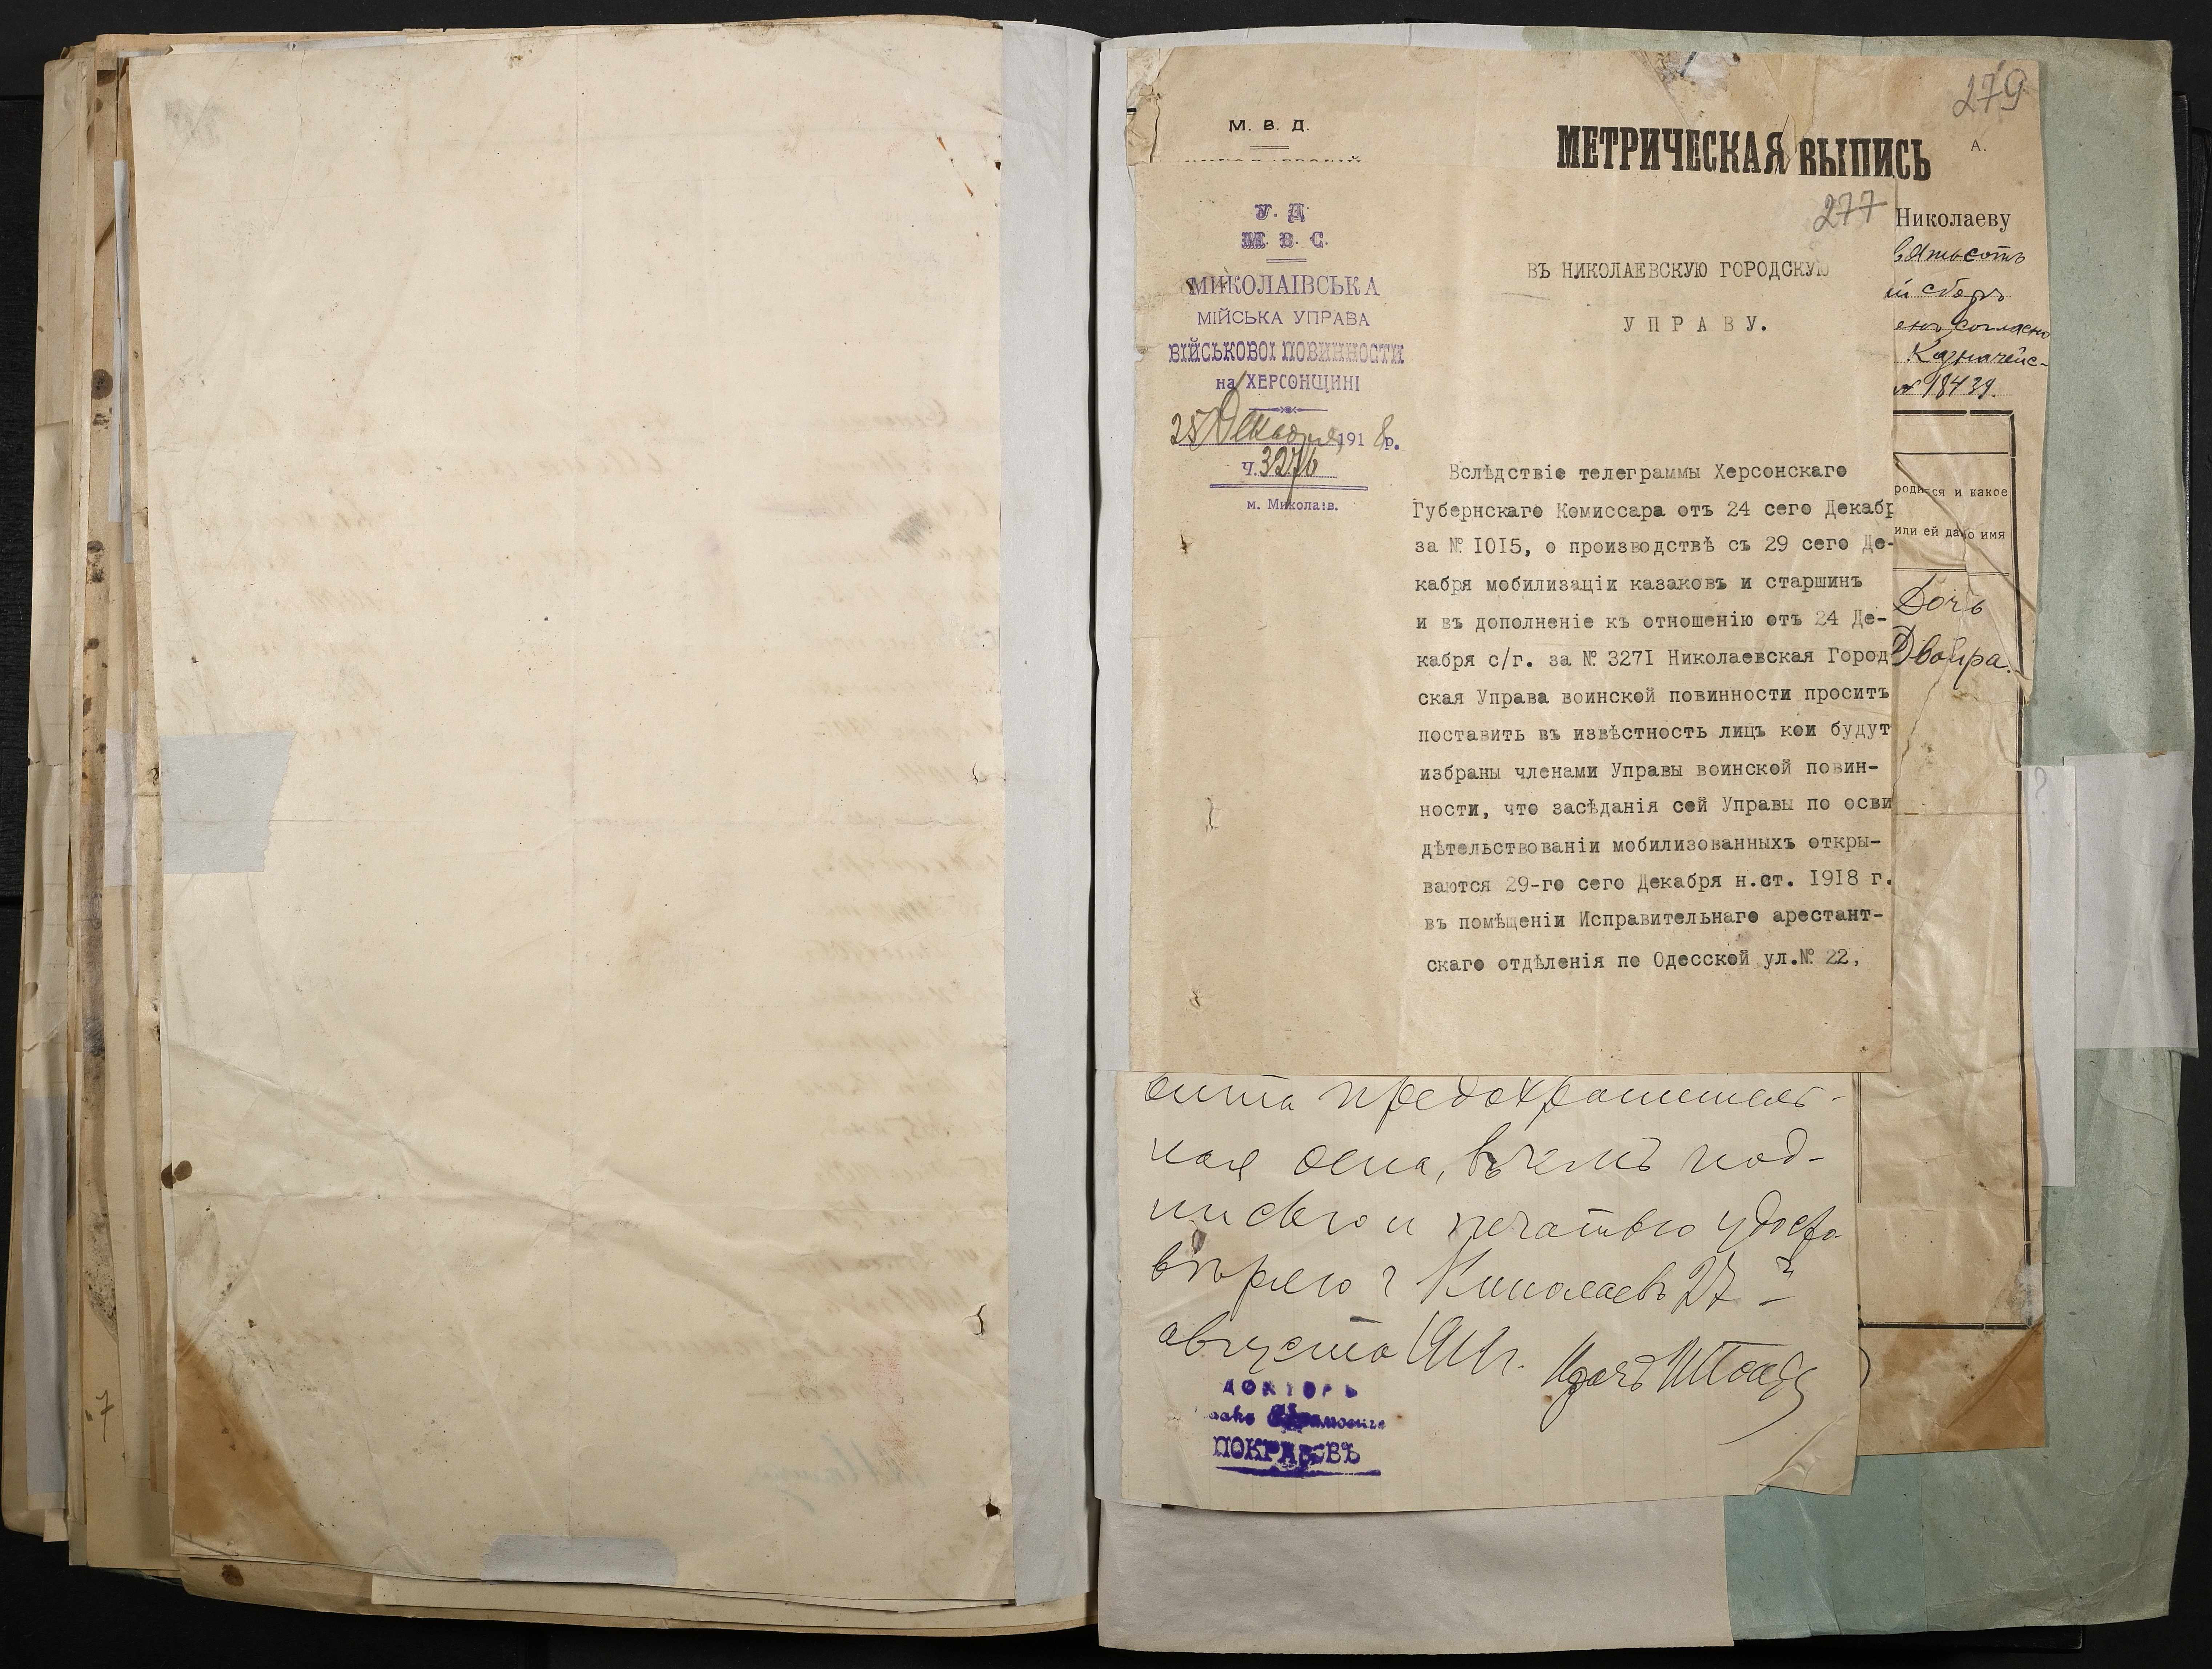 279
М. В. Д.
МЕТРИЧЕСКАЯ ВЫПИСЬ
А.
277
Николаеву
У. Д
М. В. С.
МИКОЛАІВСЬКА
МІЙСЬКА УПРАВА
ВІЙСЬКОВОІ ПОВИННОСТИ
на ХЕРСОНЩИНІ
25 Декабря 1918 р.
ч. 3276
м. Миколаів.
ВЪ НИКОЛАЕВСКУЮ ГОРОДСКУЮ
УПРАВУ.
Вслѣдствіе телеграммы Херсонскаго
Губернскаго Комиссара отъ 24 сего Декабр
за № 1015, о производствѣ съ 29 сего Де-
кабря мобилизаціи казаковъ и старшинъ
и въ дополненіе къ отношенію отъ 24 Де-
кабря с/г. за № 3271 Николаевская Город
ская Управа воинской повинности проситъ
поставить въ извѣстность лицъ кои будут
избраны членами Управы воинской повин-
ности, что засѣданія сей Управы по осви
дѣтельствованіи мобилизованныхъ откры-
ваются 29-го сего Декабря н.ст. 1918 г.
въ помѣщеніи Исправительнаго арестант-
скаго отдѣленія по Одесской ул.№ 22,
вятьсотъ
ій сборъ
енъ согласно
Казначейс-
№ 18439.
родился и какое
или ей дано имя
Дочь
Двойра.
предохранитель-
ная оспа, въ чемъ под-
писью и печатью удосто
вѣряю г Николаевъ 27
августа
Врачъ
ДОКТОРЪ
ПОКРАСОВЪ
7